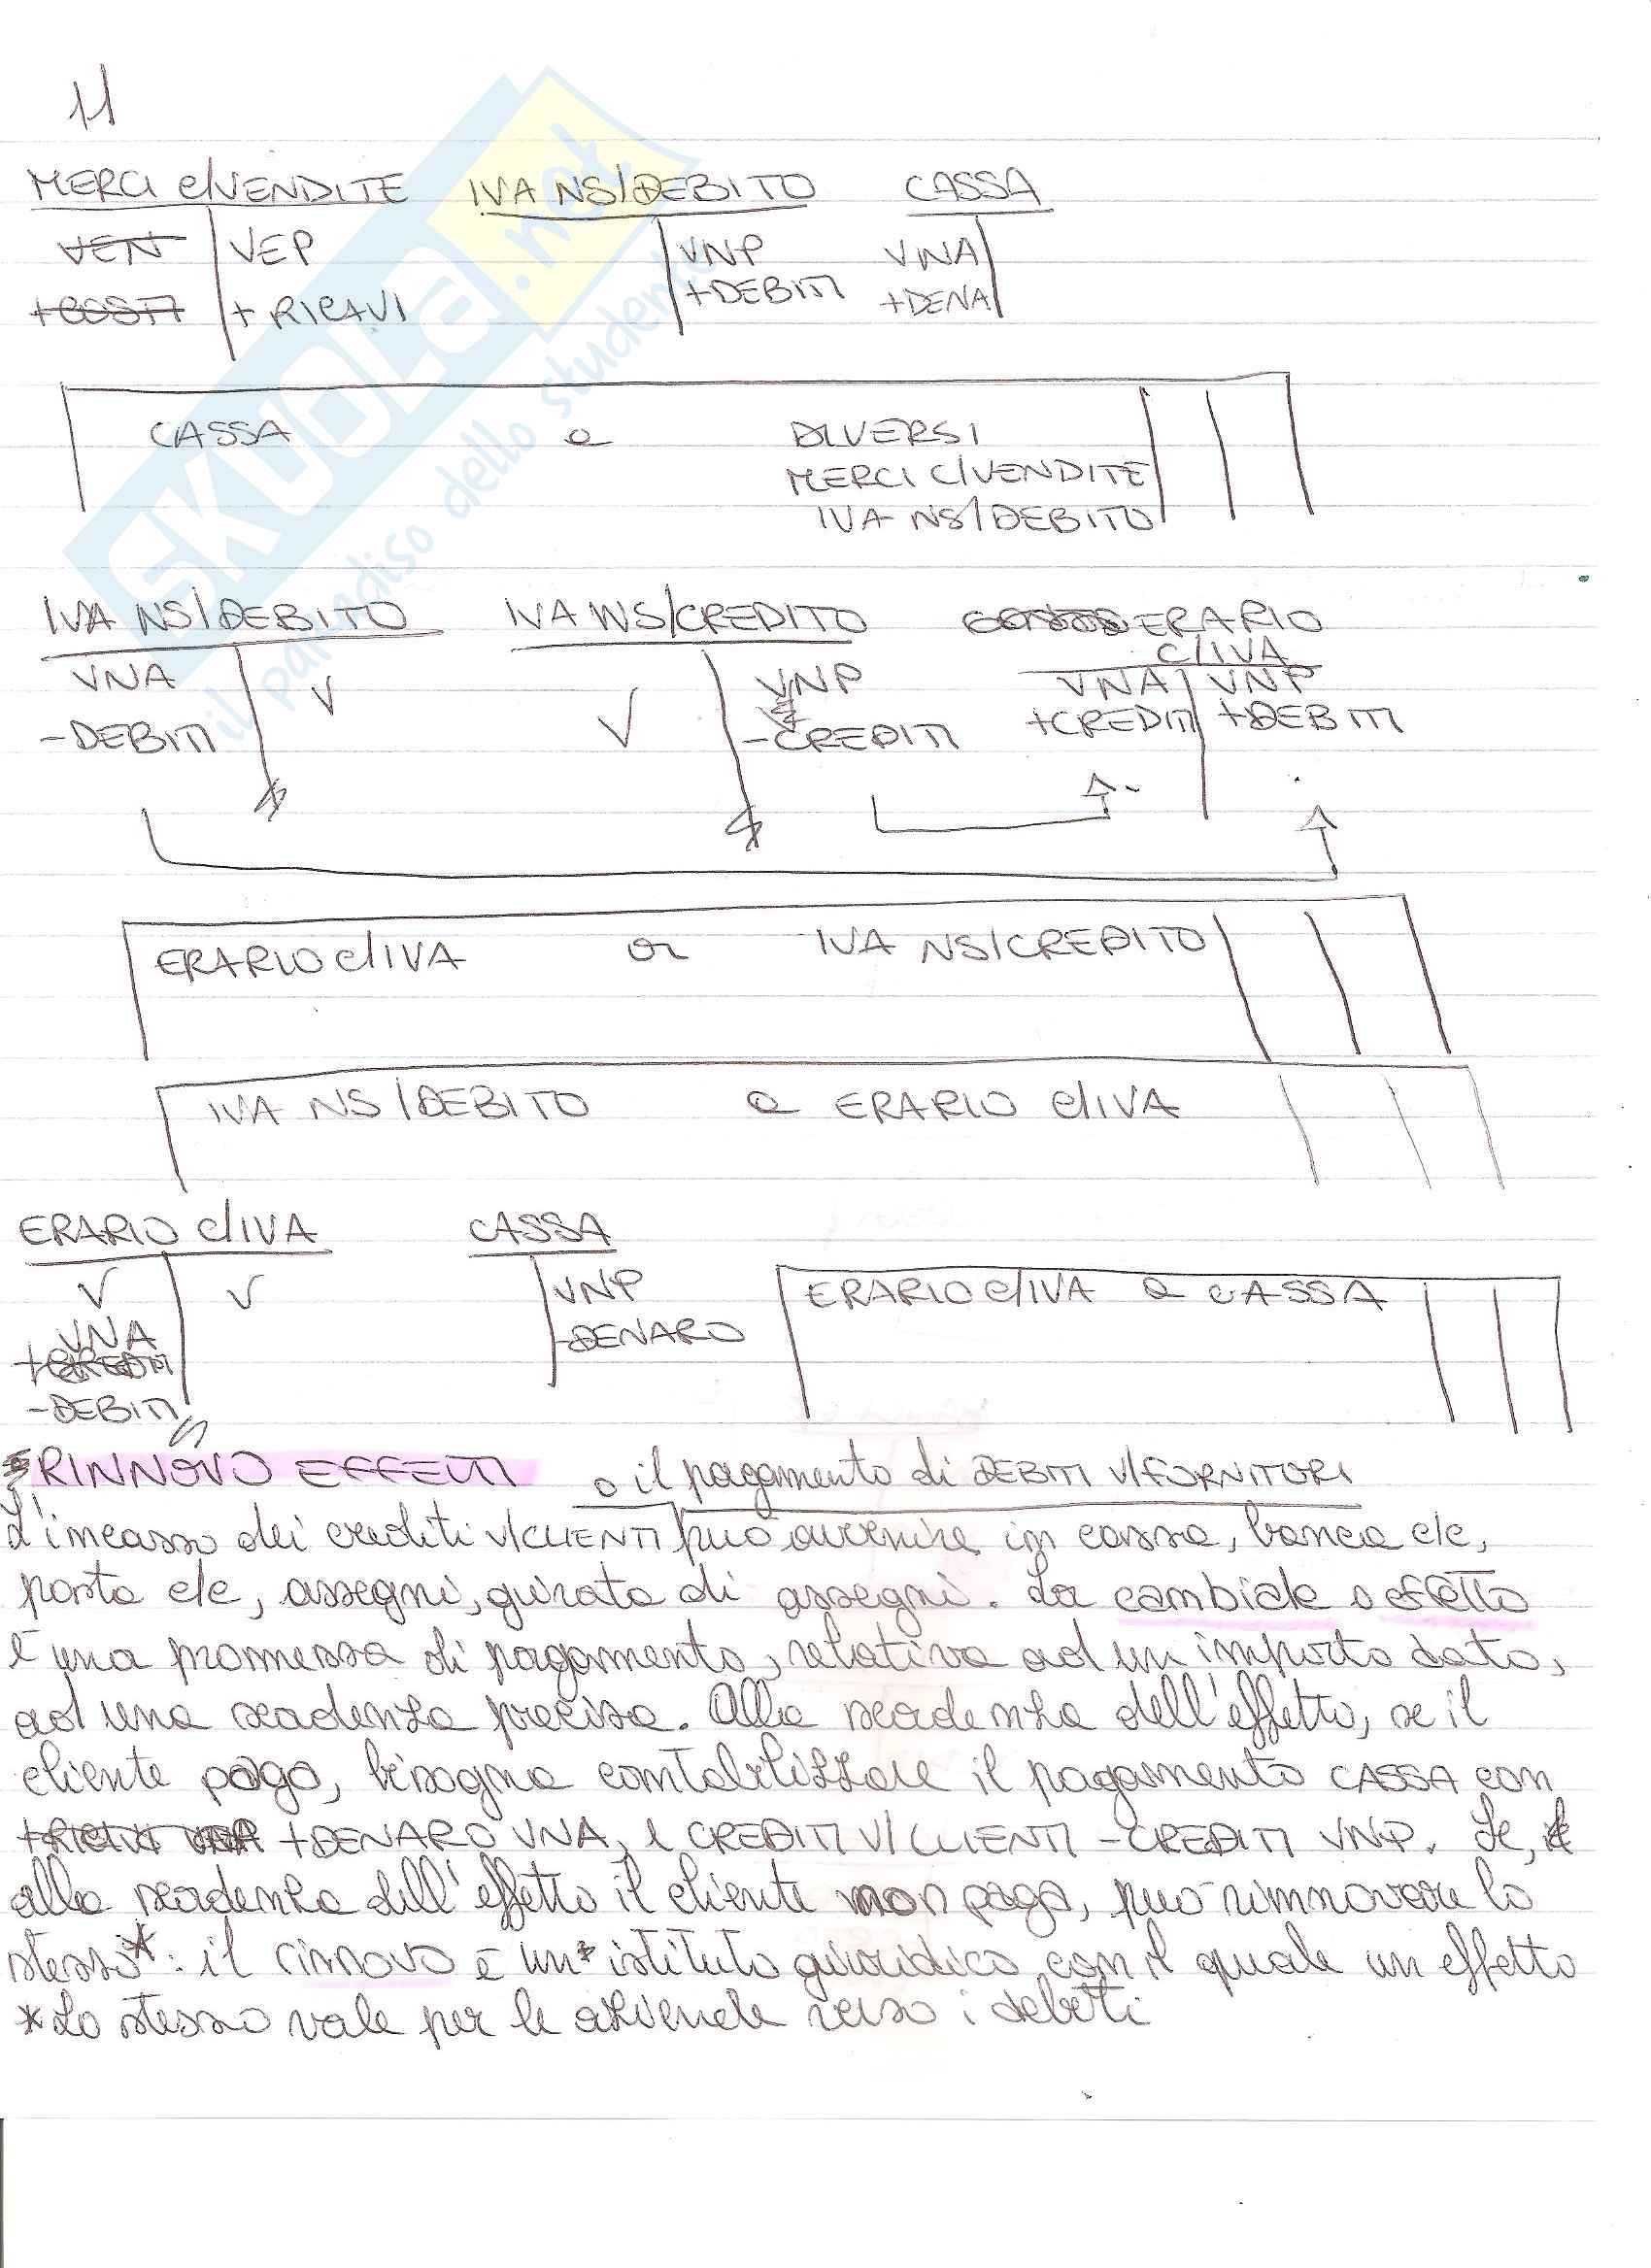 11
MERCI C/VENDITE IVA NS/DEBITO CASSA
VEN VEP VNP VNA
+COSTI + RICAVI +DEBITI +DENA
CASSA a DIVERSI
MERCI C/VENDITE
IVA NS/DEBITO
IVA NS/DEBITO IVA NS/CREDITO ERARIO
C/IVA
VNA V V VNP VNA VNP
-DEBITI -CREDITI +CREDITI +DEBITI
ERARIO C/IVA a IVA NS/CREDITO
IVA NS/DEBITO a ERARIO C/IVA
ERARIO C/IVA CASSA
V V VNP ERARIO C/IVA a CASSA
VNA -DENARO
+CREDITI
-DEBITI
RINNOVO EFFETTI o il pagamento di DEBITI V/FORNITORI
L'incasso dei crediti V/CLIENTI può avvenire in cassa, banca c/c,
posta c/c, assegni, girata di assegni. La cambiale o effetto
è una promessa di pagamento, relativa ad un importo dato,
ad una scadenza precisa. Alla scadenza dell'effetto, se il
cliente paga, bisogna contabilizzare il pagamento CASSA con
+DENARO VNA, e CREDITI V/CLIENTI -CREDITI VNP. Se,
alla scadenza dell'effetto il cliente non paga, può rinnovare lo
stesso*: il rinnovo è un istituto giuridico con il quale un effetto
*Lo stesso vale per le aziende verso i debiti
SKUOLA.net
il paradiso dello studente